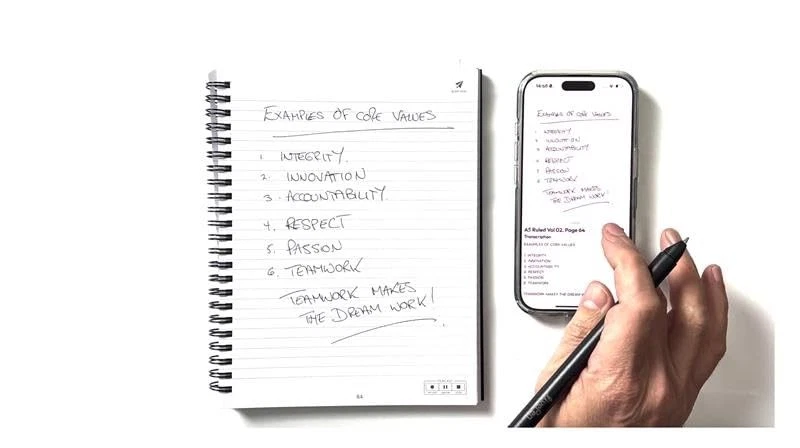 EXAMPLES OF CORE VALUES
1. INTEGRITY.
2. INNOVATION
3. ACCOUNTABILITY.
4. RESPECT
5. PASSION
6. TEAMWORK
TEAMWORK MAKES
THE DREAM WORK!
64
14:50
EXAMPLES OF CORE VALUES
1. INTEGRITY
2. INNOVATION
3. ACCOUNTABILITY
4. RESPECT
5. PASSION
6. TEAMWORK
TEAMWORK MAKES
THE DREAM WORK!
A5 Ruled Vol 02, Page 64
Transcription
EXAMPLES OF CORE VALUES
1. INTEGRITY
2. INNOVATION
3. ACCOUNTABILITY
4. RESPECT
5. PASSION
6. TEAMWORK
TEAMWORK MAKES THE DREAM